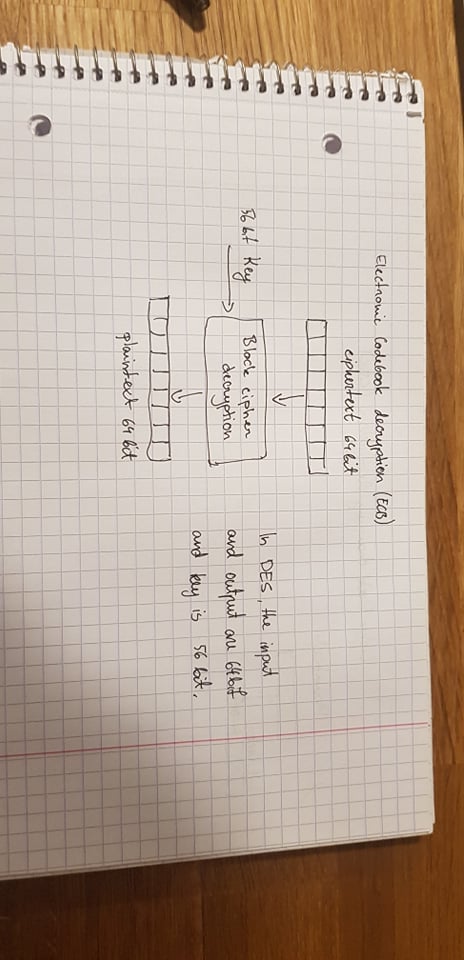 Electronic Codebook decryption (ECB)
ciphertext 64 bit
56 bit Key
Block cipher
decryption
plaintext 64 bit
In DES, the input
and output are 64bit
and key is 56 bit.